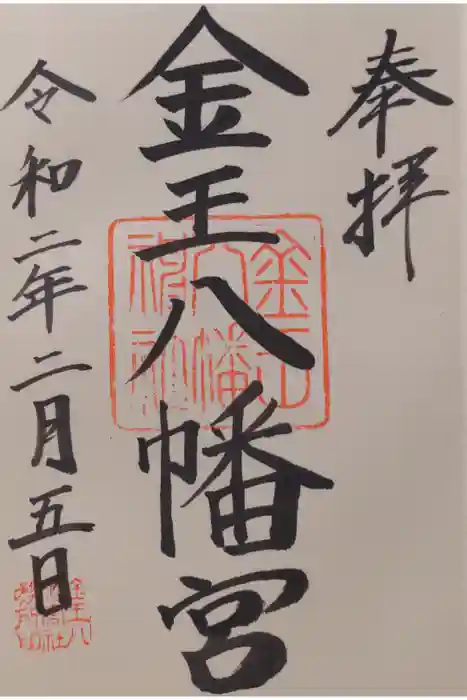 奉拝
金王八幡宮
令和二年二月五日